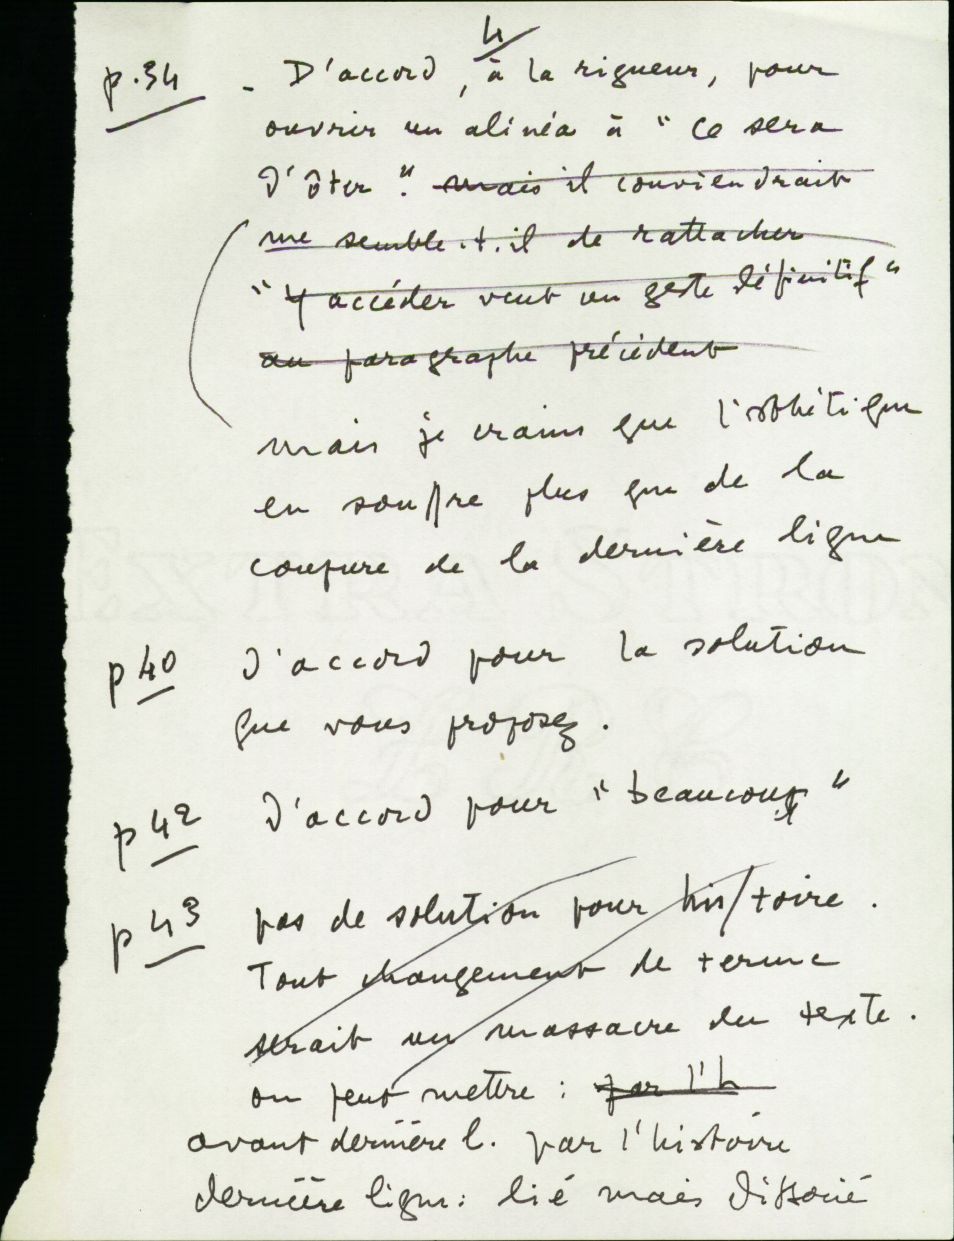 4
p.34 - D'accord, à la rigueur, pour
ouvrir un alinéa à "ce sera
d'ôter". mais il conviendrait
me semble-t-il de rattacher
"Y accéder veut un geste définitif"
au paragraphe précédent
mais je crains que l'esthétique
en souffre plus que de la
coupure de la dernière ligne
p 40 D'accord pour la solution
que vous proposez.
p 42 D'accord pour "beaucoup"
p 43 pas de solution pour his/toire.
Tout changement de terme
serait un massacre du texte.
on peut mettre : par l'h
avant dernière l. par l'histoire
dernière ligne: lié mais dissocié